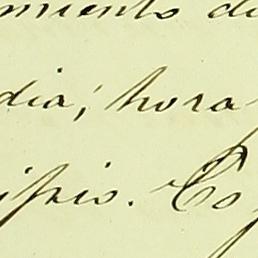 miento de
dia, hora
ipio. Co